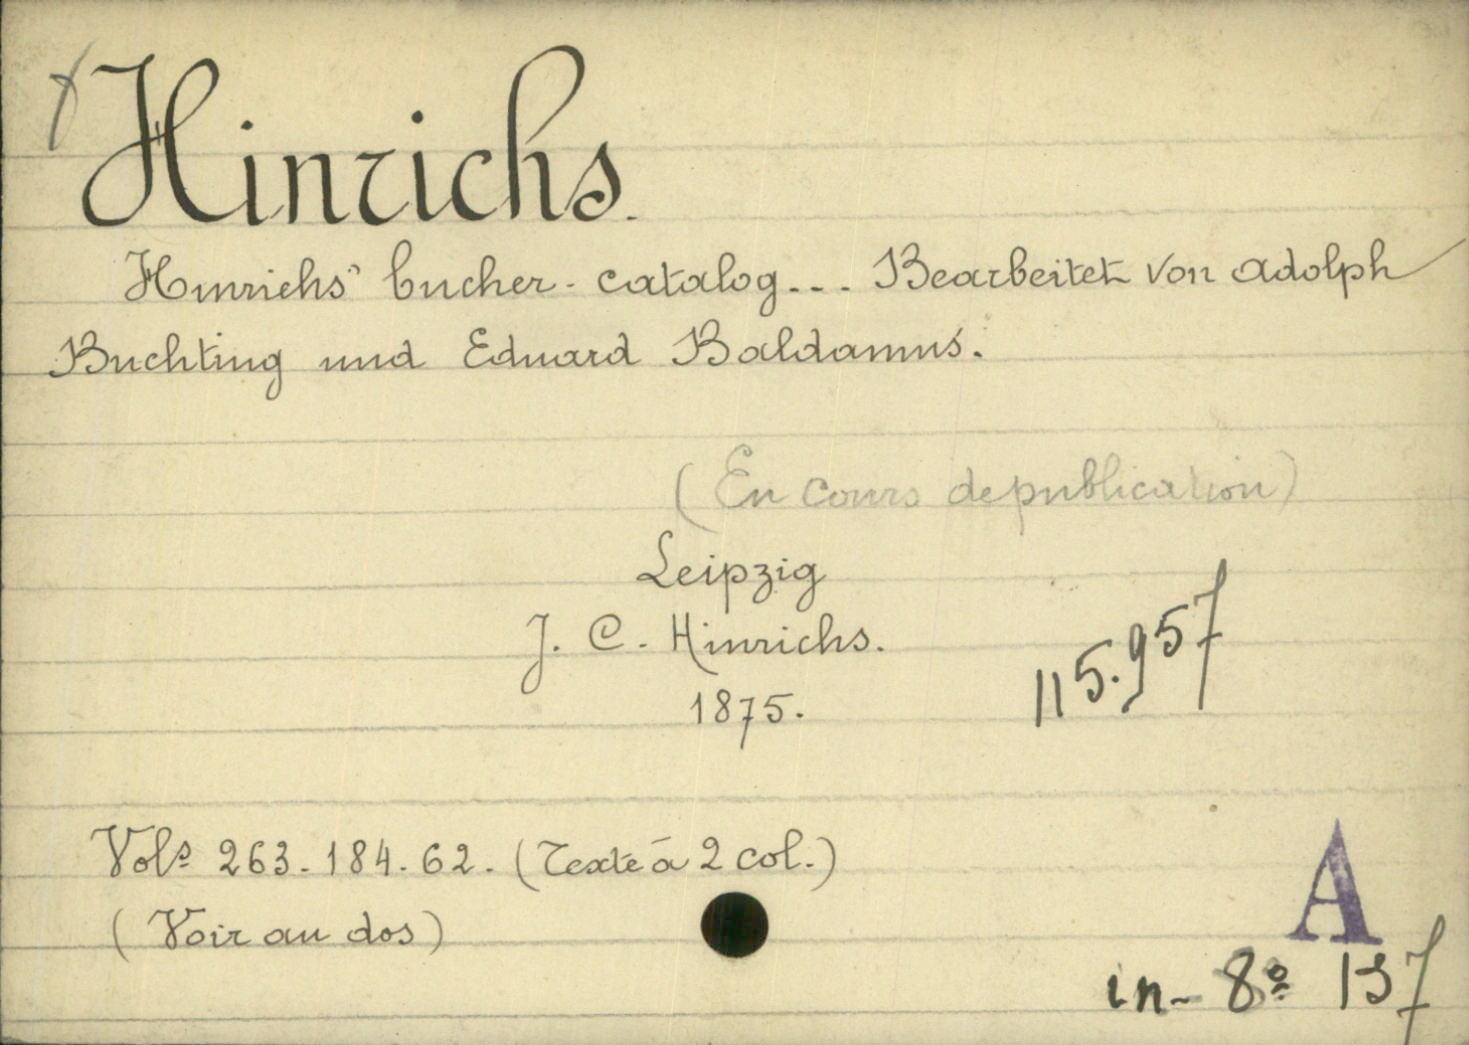 Hinrichs.
Hinrichs' bucher-catalog... Bearbeitet von Adolph
Buchting und Eduard Baldamus.
(En cours de publication)
Leipzig
J. C. Hinrichs.
1875.
115.957
Vols 263-184-62. (Texte à 2 col.)
(Voir au dos)
A
in-8º 137